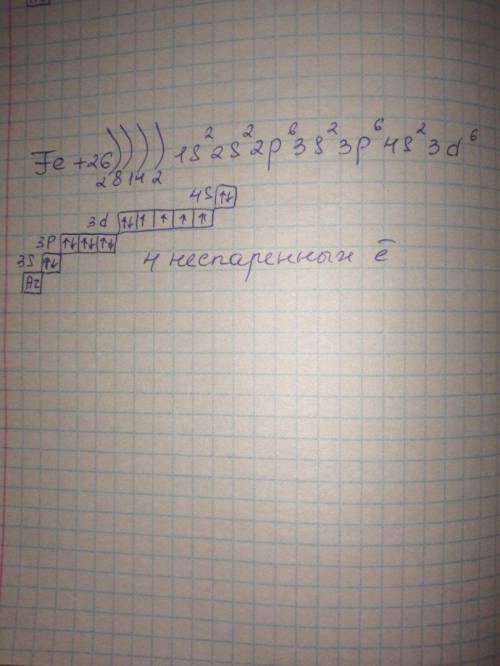 Fe +26 ) ) ) ) 1s² 2s² 2p⁶ 3s² 3p⁶ 4s² 3d⁶
2 8 14 2
4s ↑↓
3d ↑↓ ↑ ↑ ↑ ↑
3p ↑↓ ↑↓ ↑↓
4 неспаренных ē
3s ↑↓
Ar